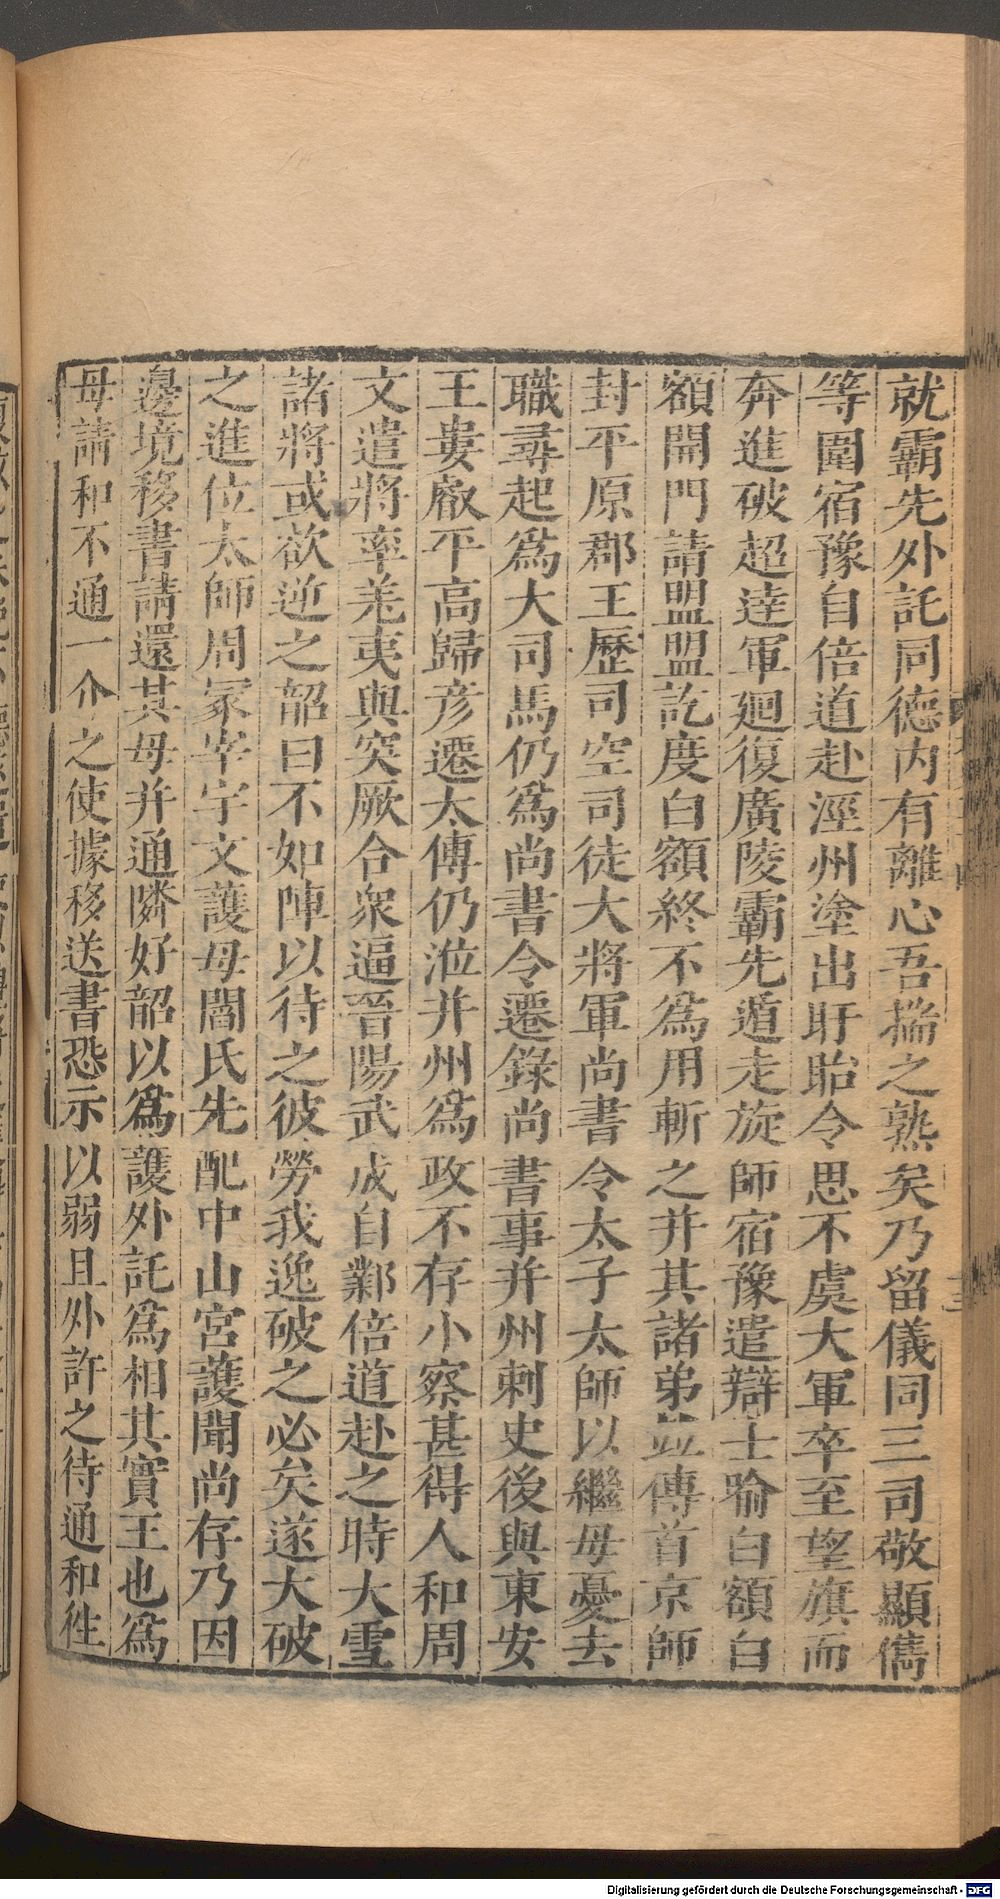 就霸先外託同德内有離心吾揣之熟矣乃留儀同三司敬顯儁
等圍宿豫自倍道赴涇州塗出盱眙令思不虞大軍卒至望旗而
奔進破超逹軍廻復廣陵霸先遁走旋師宿豫遣辯士喻白額白
額開門請盟盟訖度白額終不為用斬之并其諸弟並傳首京師
封平原郡王歷司空司徒大將軍尚書令太子太師以繼母憂去
職尋起為大司馬仍為尚書令遷錄尚書事并州刺史後與東安
王婁叡平高歸彦遷太傅仍涖并州為政不存小察甚得人和周
文遣將率羌夷與突厥合衆逼晉陽武成自鄴倍道赴之時大雪
諸將或欲逆之韶曰不如陣以待之彼勞我逸破之必矣遂大破
之進位太師周冢宰宇文護母閻氏先配中山宮護聞尚存乃因
邊境移書請還其母并通隣好韶以為護外託為相其實王也為
母請和不通一介之使據移送書恐示以弱且外許之待通和徃
Digitalisierung gefördert durch die Deutsche Forschungsgemeinschaft - DFG